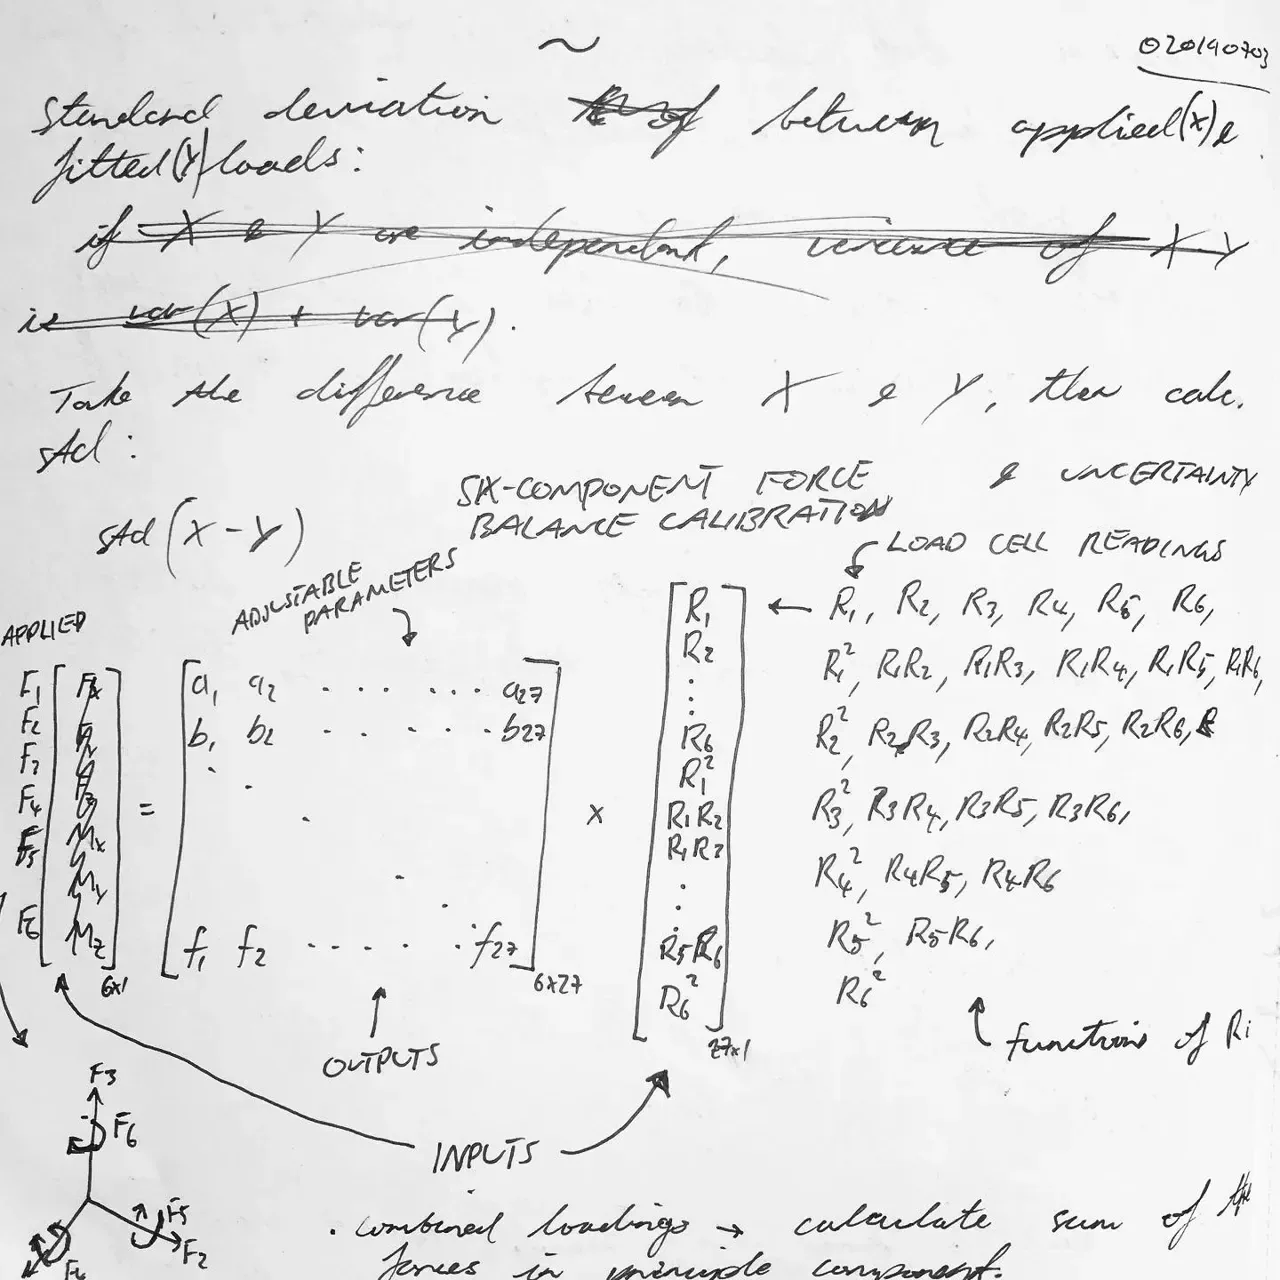 ~
020190703
standard deviation of between applied(X) &
fitted(Y) loads:
if X & Y are independent, variance of X Y
is var(X) + var(Y).
Take the difference between X & Y, then calc.
std:
std(X-Y)
SIX-COMPONENT FORCE & UNCERTAINTY
BALANCE CALIBRATION
LOAD CELL READINGS
ADJUSTABLE
PARAMETERS
APPLIED
F1
F2
F3
F4
F5
F6
Fx
Mx
My
Mz
6x1
=
a1 a2 ... ... a27
b1 b2 ... ... b27
f1 f2 ... ... f27
6x27
x
R1
R2
R6
R1²
R1R2
R1R3
R5R6
R6²
27x1
R1, R2, R3, R4, R5, R6,
R1², R1R2, R1R3, R1R4, R1R5, R1R6,
R2², R2R3, R2R4, R2R5, R2R6,
R3², R3R4, R3R5, R3R6,
R4², R4R5, R4R6
R5², R5R6,
R6²
functions of Ri
OUTPUTS
INPUTS
F3
F6
F5
F2
F4
. combined loadings → calculate sum of
forces in principle component.